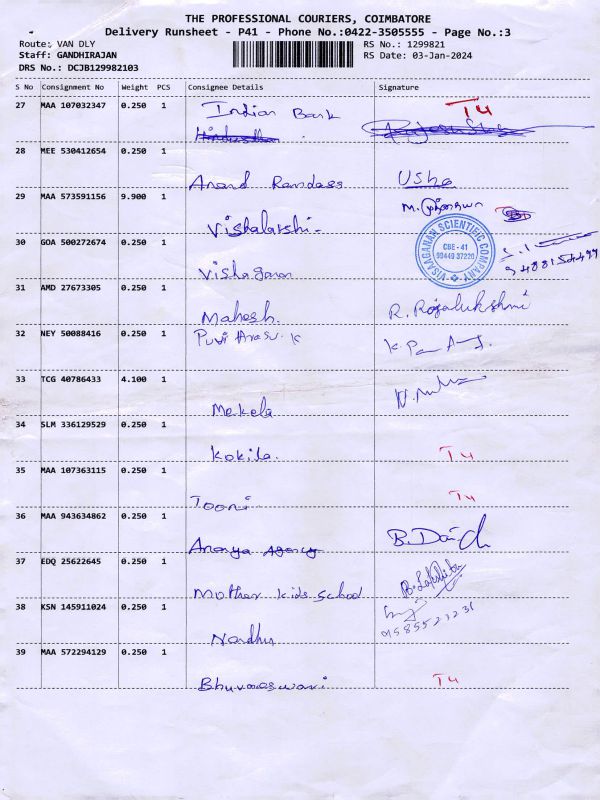 THE PROFESSIONAL COURIERS, COIMBATORE
Delivery Runsheet - P41 - Phone No.:0422-3505555 - Page No.:3
Route: VAN DLY RS No.: 1299821
Staff: GANDHIRAJAN RS Date: 03-Jan-2024
DRS No.: DCJB129982103
S No Consignment No Weight PCS Consignee Details Signature
27 MAA 107032347 0.250 1 Indian Bank T4
28 MEE 530412654 0.250 1 Anand Ramdass Usha
29 MAA 573591156 9.900 1 Vishalakshi.
30 GOA 500272674 0.250 1 Vishaganan
VISAAGANAN SCIENTIFIC COMPANY
CBE - 41
90449 37220
31 AMD 27673305 0.250 1 Mahesh. R. Rajalukshmi
32 NEY 50088416 0.250 1 Puvi Arasu. K
33 TCG 40786433 4.100 1 Mekela
34 SLM 336129529 0.250 1 Kokila. T4
35 MAA 107363115 0.250 1 Tooni T4
36 MAA 943634862 0.250 1 Ananya Agency
37 EDQ 25622645 0.250 1 Mother Kids School
38 KSN 145911024 0.250 1 Nandhu
39 MAA 572294129 0.250 1 Bhuvaneswari T4